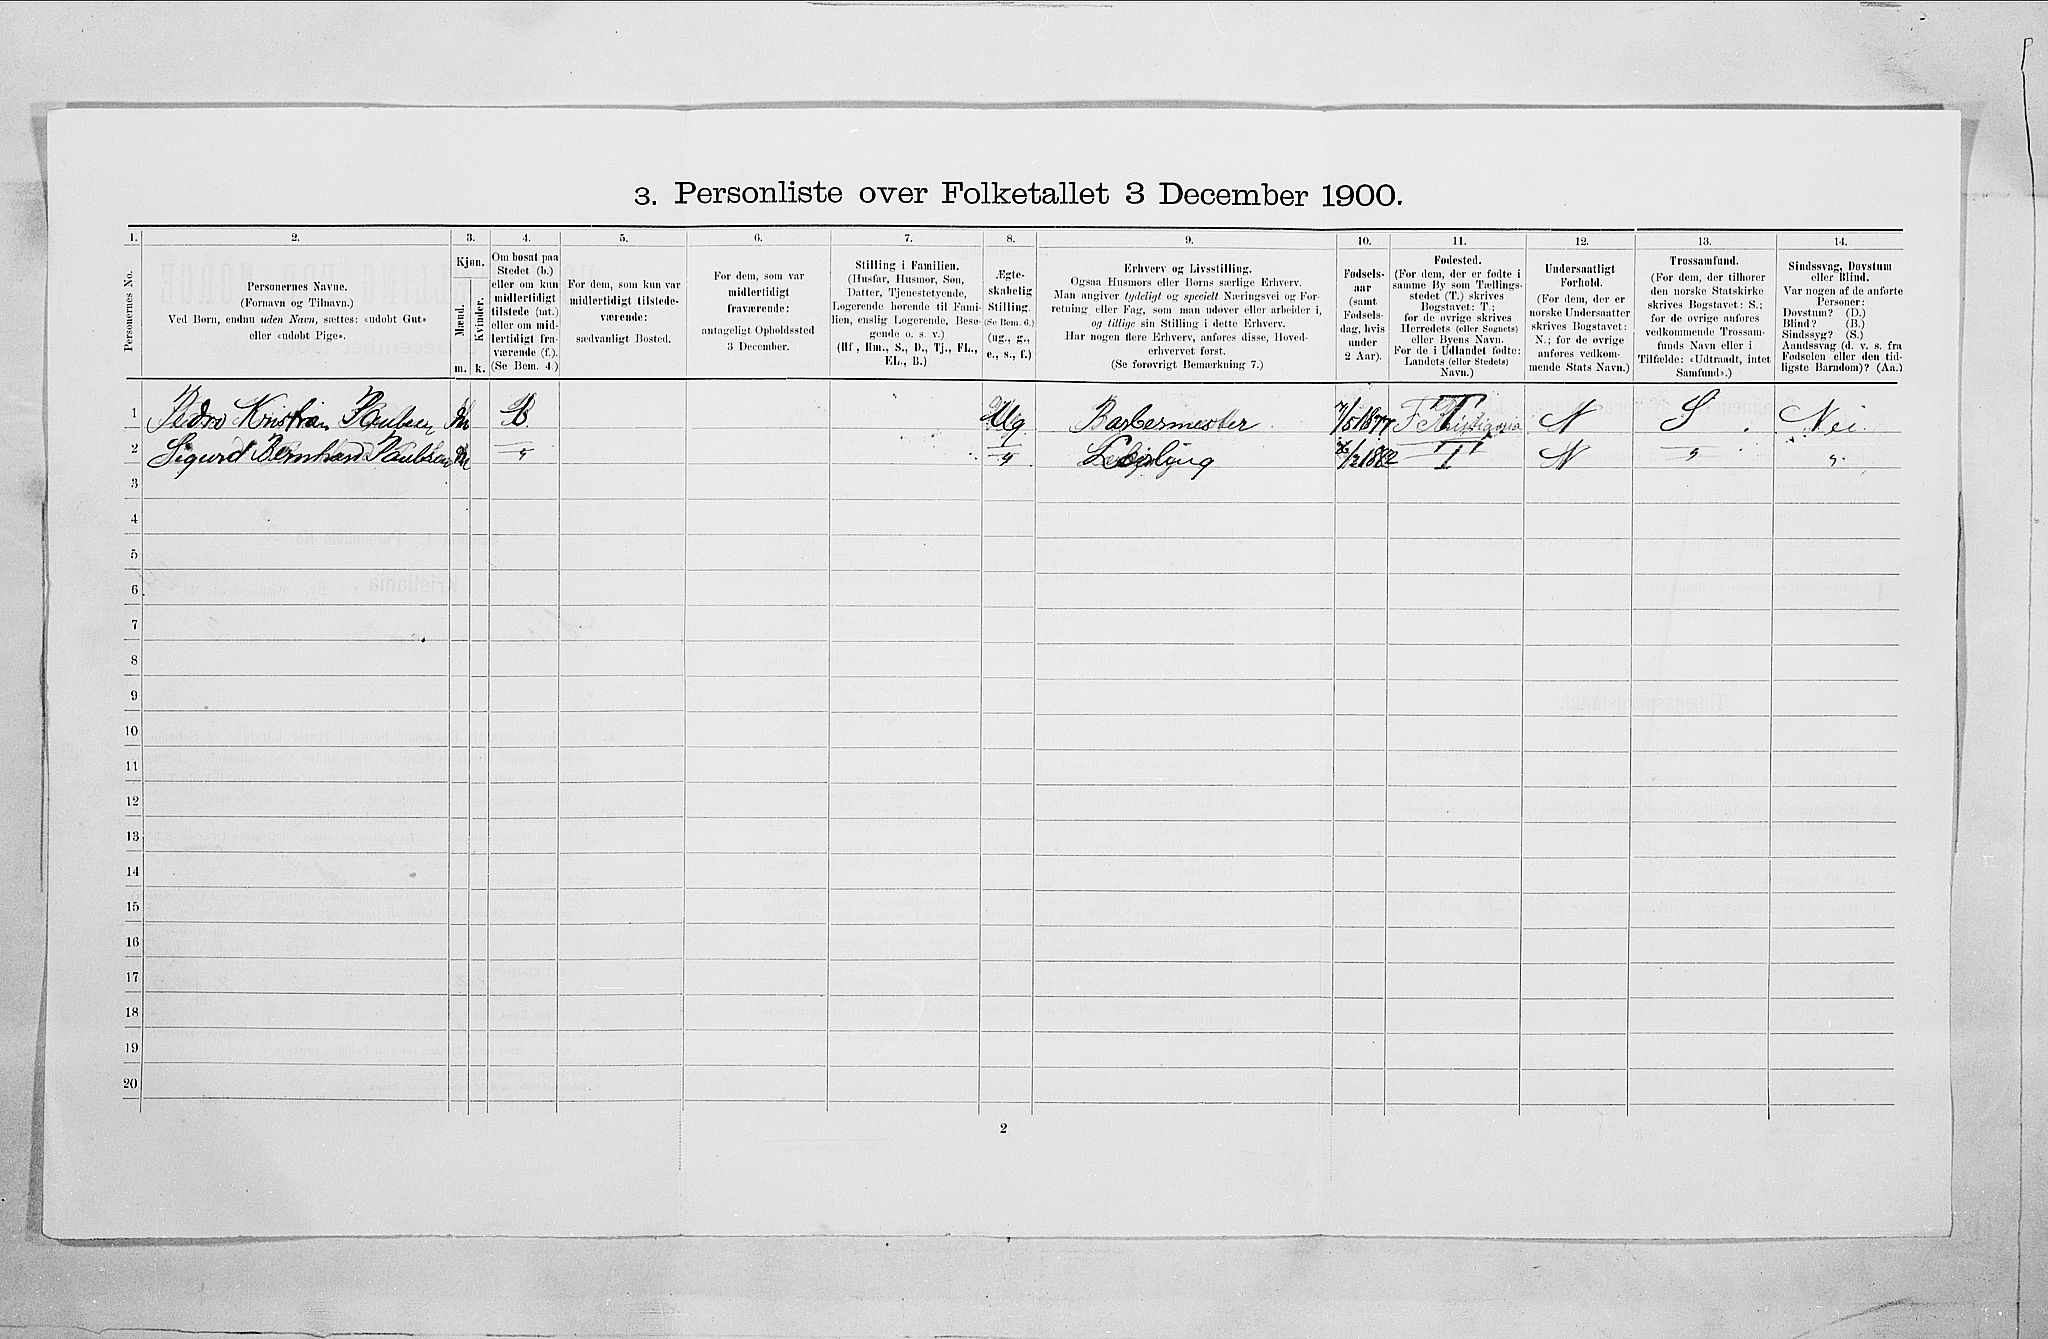 3. Personliste over Folketallet 3 December 1900.
1. 2. 3. 4. 5. 6. 7. 8. 9. 10. 11. 12. 13. 14.
Personernes No.
Personernes Navne.
(Fornavn og Tilnavn.)
Ved Børn, endnu uden Navn, sættes: «udøbt Gut»
eller «udøbt Pige».
Kjøn.
Mænd.
Kvinder.
m. k.
Om bosat paa
Stedet (b.)
eller om kun
midlertidigt
tilstede (mt.)
eller om mid-
lertidigt fra-
værende (f.).
(Se Bem. 4.)
For dem, som kun var
midlertidigt tilstede-
værende:
sædvanligt Bosted.
For dem, som var
midlertidigt
fraværende:
antageligt Opholdssted
3 December.
Stilling i Familien.
(Husfar, Husmor, Søn,
Datter, Tjenestetyende,
Logerende hørende til Fami-
lien, enslig Logerende, Besø-
gende o. s. v.)
(Hf., Hm., S., D., Tj., FL.,
EL., B.)
Ægte-
skabelig
Stilling.
(Se Bem. 6.)
(ug., g.,
e., s., f.)
Erhverv og Livsstilling.
Ogsaa Husmors eller Børns særlige Erhverv.
Man angiver tydeligt og specielt Næringsvei og For-
retning eller Fag, som man udøver eller arbeider i,
og tillige sin Stilling i dette Erhverv.
Har nogen flere Erhverv, anføres disse, Hoved-
erhvervet først.
(Se forøvrigt Bemærkning 7.)
Fødsels-
aar
(samt
Fødsels-
dag, hvis
under
2 Aar).
Fødested.
(For dem, der er fødte i
samme By som Tællings-
stedet (T.) skrives
Bogstavet: T.;
for de øvrige skrives
Herredets (eller Sognets)
eller Byens Navn.
For de i Udlandet fødte:
Landets (eller Stedets)
Navn.)
Undersaatligt
Forhold.
(For dem, der er
norske Undersaatter
skrives Bogstavet:
N.; for de øvrige
anføres vedkom-
mende Stats Navn.)
Trossamfund.
(For dem, der tilhører
den norske Statskirke
skrives Bogstavet: S.;
for de øvrige anføres
vedkommende Trossam-
funds Navn eller i
Tilfælde: «Udtraadt, intet
Samfund».)
Sindssvag, Døvstum
eller Blind.
Var nogen af de anførte
Personer:
Døvstum? (D.)
Blind? (B.)
Sindssyg? (S.)
Aandssvag (d. v. s. fra
Fødselen eller den tid-
ligste Barndom)? (Aa.)
1 Pedro Kristian Paulsen M B. Ug Barbermester 7/5 1877 T N S. Nei
2 Sigurd Bernhard Paulsen M " " 1882 T N " "
3
4
5
6
7
8
9
10
11
12
13
14
15
16
17
18
19
20
2